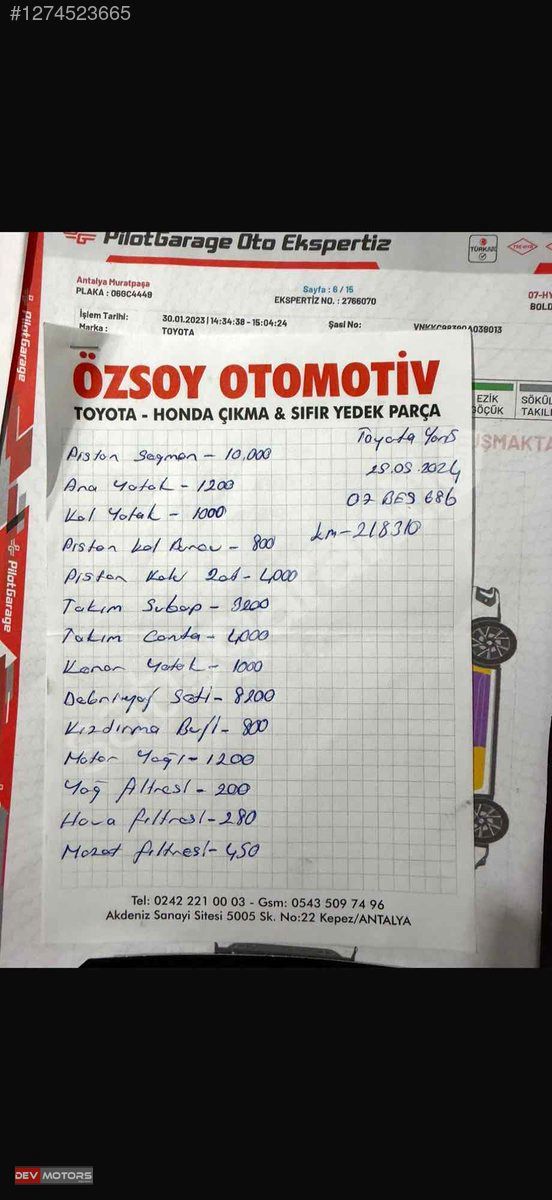 #1274523665
PilotGarage Oto Ekspertiz
TÜRKAK
Antalya Muratpaşa
PLAKA : 06GC4449
Sayfa : 6 / 15
EKSPERTİZ NO. : 2766070
07-HY
BOLD
İşlem Tarihi:
30.01.2023 | 14:34:38 - 15:04:24
Şasi No:
Marka :
TOYOTA
PilotGarage
ÖZSOY OTOMOTİV
TOYOTA - HONDA ÇIKMA & SIFIR YEDEK PARÇA
EZİK
GÖÇÜK
SÖKÜL
TAKILI
UŞMAKTA
Toyota Yaris
25.05.2024
07 BES 686
km-218310
Piston Segman - 10,000
Ana Yatak - 1200
Kol Yatak - 1000
Piston kol Burcu - 800
Piston Kolu 2ad - 4,000
Takım Subap - 3200
Takım Conta - 4,000
Kenar Yatak - 1000
Debriyaj Seti - 8200
Kızdırma Buji - 800
Motor Yağı - 1200
Yağ filtresi - 200
Hava filtresi - 280
Mazot filtresi - 450
PilotGarage
PilotGarage
Tel: 0242 221 00 03 - Gsm: 0543 509 74 96
Akdeniz Sanayi Sitesi 5005 Sk. No:22 Kepez/ANTALYA
DEV MOTORS